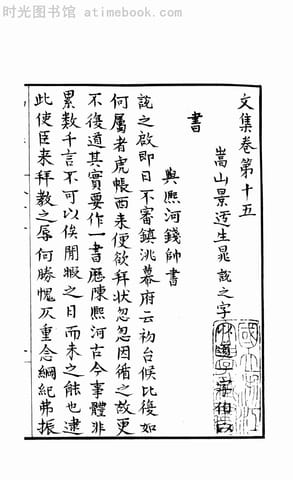 时光图书馆 www.atimebook.com
文集卷第十五
嵩山景迂生晁說之字
書
與熙河錢帥書
說之啟即日不審鎮洮幕府云初台候比復如
何屬者虎帳西來便欲拜狀忽忽因循之故更
不復道其實要作一書歷陳熙河古今事體非
累數千言不可以俟閒暇之日而未之能也逮
此使臣來拜教之辱何勝愧仄重念綱紀弗振